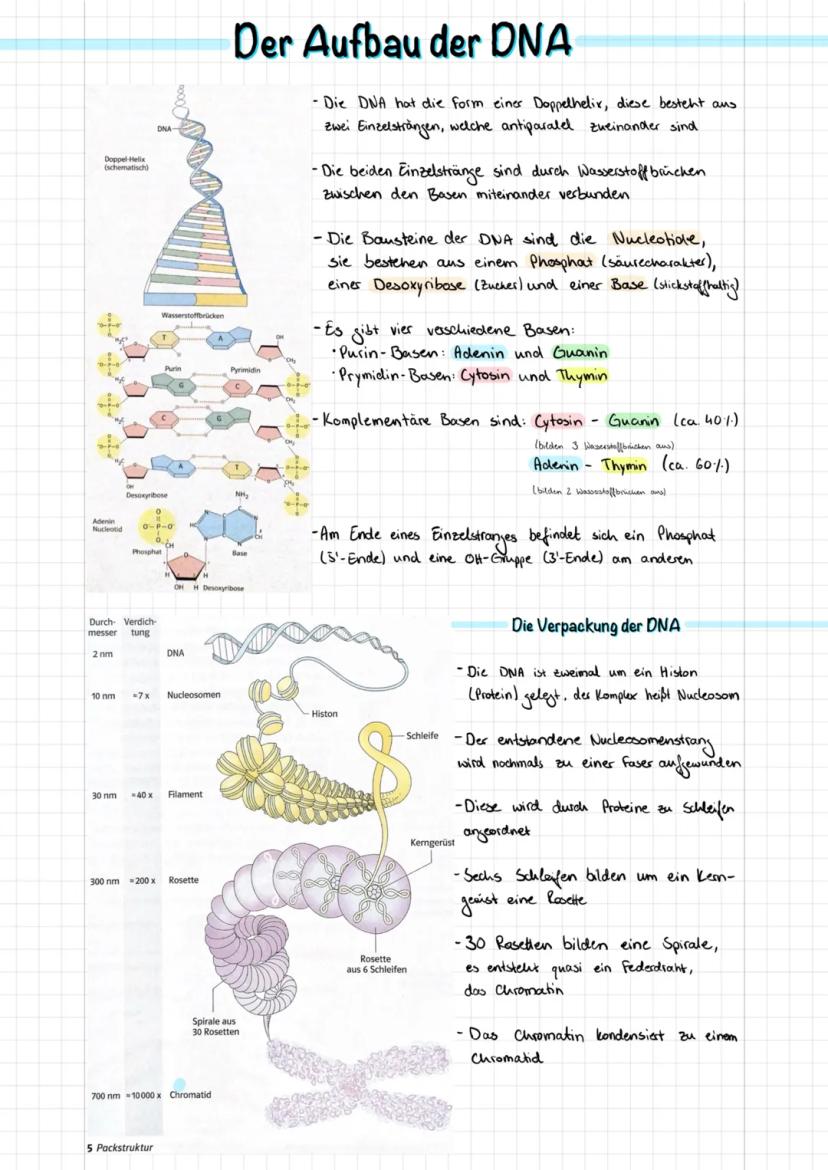 Der Aufbau der DNA
DNA
Doppel-Helix
(schematisch)
- Die DNA hat die Form einer Doppelhelix, diese besteht aus
zwei Einzelsträngen, welche antiparalel zueinander sind
- Die beiden Einzelstränge sind durch Wasserstoffbrücken
zwischen den Basen miteinander verbunden
- Die Bausteine der DNA sind die Nucleotide,
sie bestehen aus einem Phosphat (säurecharakter),
einer Desoxyribose (Zucker) und einer Base (stickstoffhaltig)
- Es gibt vier verschiedene Basen:
• Purin-Basen: Adenin und Guanin
• Prymidin-Basen: Cytosin und Thymin
- Komplementäre Basen sind: Cytosin - Guanin (ca. 40%)
(bilden 3 Wasserstoffbrücken aus)
Adenin - Thymin (ca. 60%)
(bilden 2 Wasserstoffbrücken aus)
- Am Ende eines Einzelstranges befindet sich ein Phosphat
(5'-Ende) und eine OH-Gruppe (3'-Ende) am anderen
Wasserstoffbrücken
T A
OH
H₂C
CH₂
Purin Pyrimidin
G C
C G
A T
OH
Desoxyribose
NH₂
Adenin
Nucleotid
O
O⁻-P-O⁻
O
CH
Phosphat
Base
N
N
N
HC
CH
O
H H
OH H Desoxyribose
Durch-
messer
Verdich-
tung
2 nm DNA
10 nm ≈7 x Nucleosomen
Histon
Schleife
30 nm ≈40 x Filament
Kerngerüst
300 nm ≈200 x Rosette
Rosette
aus 6 Schleifen
Spirale aus
30 Rosetten
700 nm ≈10000 x Chromatid
5 Packstruktur
Die Verpackung der DNA
- Die DNA ist zweimal um ein Histon
(Protein) gelegt, der Komplex heißt Nucleosom
- Der entstandene Nucleosomenstrang
wird nochmals zu einer Faser aufgewunden
- Diese wird durch Proteine zu Schleifen
angeordnet
- Sechs Schleifen bilden um ein Kern-
gerüst eine Rosette
- 30 Rosetten bilden eine Spirale,
es entsteht quasi ein Federdraht,
das Chromatin
- Das Chromatin kondensiert zu einem
Chromatid